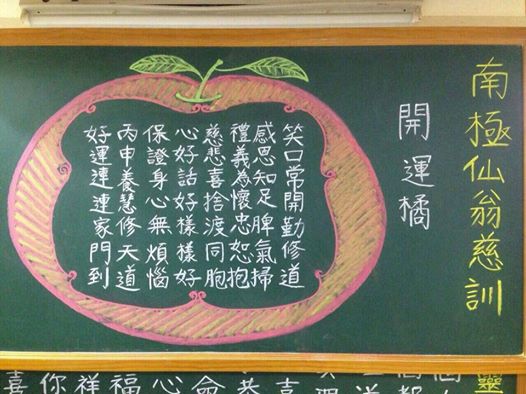 南極仙翁慈訓
開運橘
笑口常開勤修道
感恩知足脾氣掃
禮義為懷忠恕抱
慈悲喜捨渡同胞
心好話好樣樣好
保證身心無煩惱
丙申養慧修天道
好運連連家門到
靈
喜
恭
命
心
福
祥
你
喜